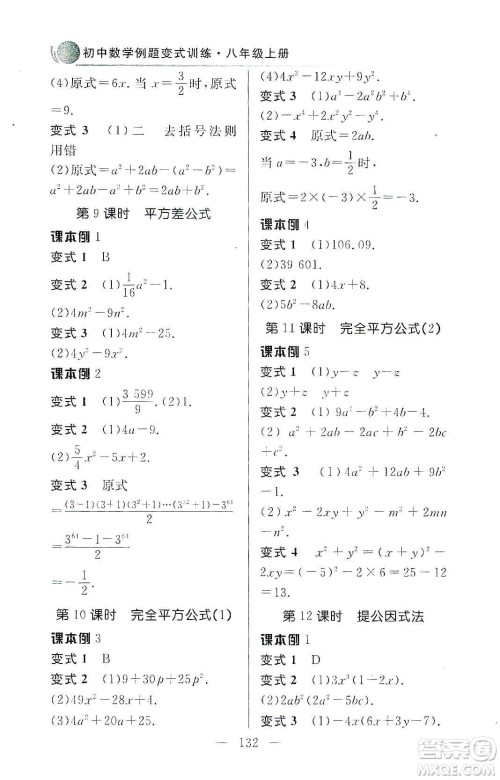 初中数学例题变式训练·八年级上册
(4)原式=6x. 当 x=3/2时,原式
=9.
变式 3 (1)二 去括号法则
用错
(2)原式=a²+2ab-(a²-b²)=
a²+2ab-a²+b²=2ab+b².
第 9 课时 平方差公式
课本例 1
变式 1 B
变式 2 (1)1/16a²-1.
(2)4m²-9n².
变式 3 (1)4a²-1.
(2)4y²-9x².
课本例 2
变式 1 (1)3 599/9. (2)1.
(2)5/4x²-5x+2.
变式 3 原式
=(3-1)(3+1)(3²+1)…(3³²+1)-3⁶⁴/2
=3⁶⁴-1-3⁶⁴/2
=-1/2.
第 10 课时 完全平方公式(1)
课本例 3
变式 1 B
变式 2 (1)9+30x+25x².
(2)4x²-12xy+9y².
(3)4a²+20a+25.
(4)4x²-12xy+9y².
变式 3 (1)4-a²-2ab-b².
(2)-a⁴+2a²b²-b⁴.
变式 4 原式=2ab.
当 a=-3,b=1/2时,
原式=2×(-3)×1/2=-3.
课本例 4
变式 1 (1)106.09.
(2)39 601.
变式 2 (1)4x+8.
(2)5b²-8ab.
第 11 课时 完全平方公式(2)
课本例 5
变式 1 (1)y-z y-z
(2)y+z y+z
变式 2 (1)9a²-b²+2b-1.
(2) a²+b²-2ab+2ac-2bc
+c².
变式 3 (1)x²+6x+9-y².
(2)-4m²+1-2n
-n².
变式 4 x²+y²=(x+y)²-
2xy=5²-2×6=13.
第 12 课时 提公因式法
课本例 1
变式 1 D
变式 2 (1)3x³(1-2x).
(2)2ab²(2a-3b+1).
132